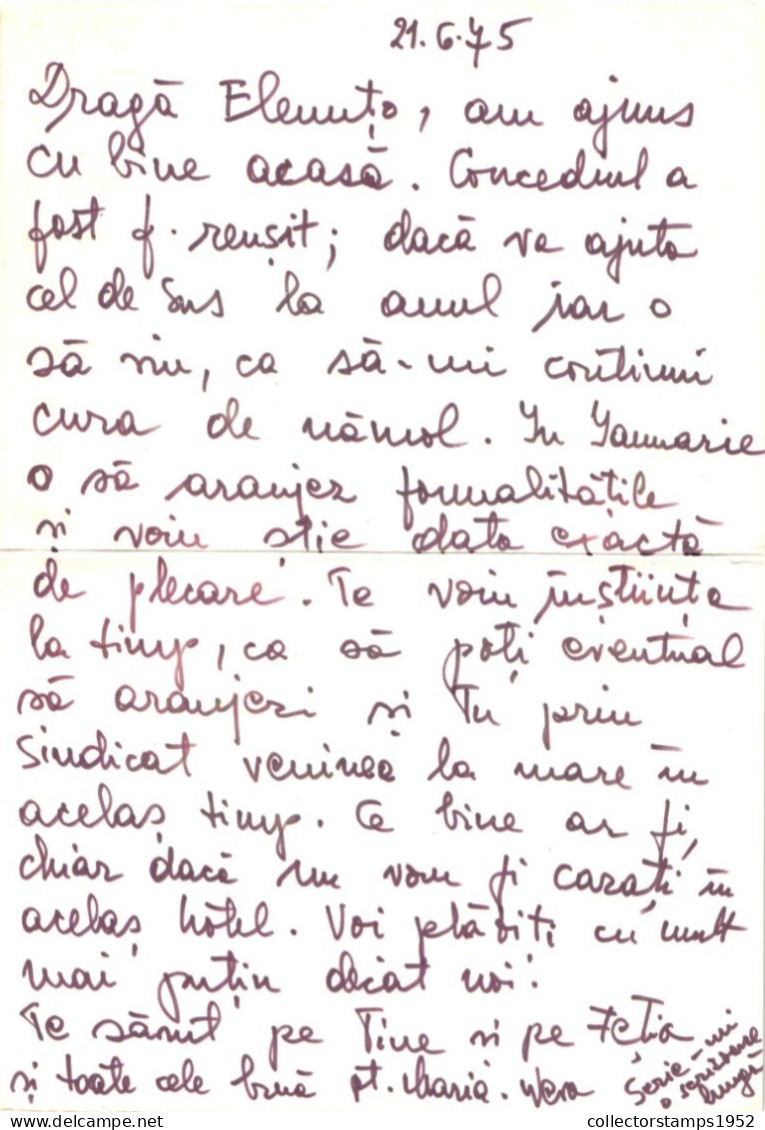 21.6.75
Dragă Elenuțo, am ajuns
cu bine acasă. Concediul a
fost f. reușit; dacă va ajuta
cel de sus la anul iar o
să viu, ca să-mi continui
cura de nămol. In Ianuarie
o să aranjez formalitățile
și voiu știe data exactă
de plecare. Te voiu înștiința
la timp, ca să poți eventual
să aranjezi și Tu prin
Sindicat venirea la mare în
acelaș timp. Ce bine ar fi,
chiar dacă nu vom fi cazați în
acelaș hôtel. Voi plătiți cu mult
mai puțin decât noi.
Te sărut pe Tine și pe Fetia
și toate cele bune pt. Maria. Wera
Scrie-mi
o scrisoare
lungă
collectorstamps1952